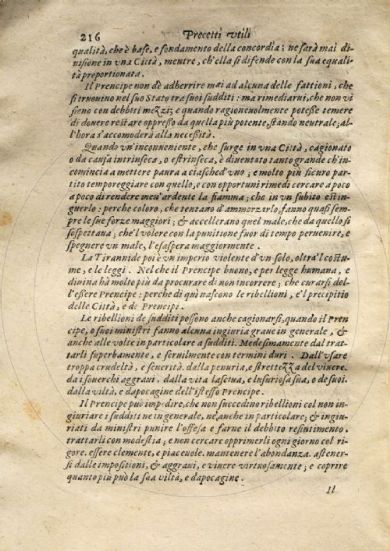 216 Precetti vtili
qualità, che è base, e fondamento della concordia; ne sarà mai di
uisione in vna Città, mentre, ch'ella si difende con la sua equali
tà proportionata.
Il Prencipe non dè adherrire mai ad alcuna delle fattioni, che
si truouino nel suo Stato tra suoi sudditi: ma rimediarui, che non vi
sieno con debbiti mezzi; e quando ragioneuolmente potesse temere
di douere restare oppresso da quella più potente, stando neutrale; al-
l'hora s'accomoderà alla necessità.
Quando vn'inconueniente, che surge in vna Città, cagionato
o da causa intrinseca, o estrinseca, è diuentato tanto grande ch'in-
comincia a mettere paura a ciascheduno; e molto più sicuro par
tito temporeggiare con quello, e con opportuni rimedi cercare a poco
a poco di rendere men'ardente la fiamma; che in vn subito estin
guerlo: perche coloro, che tentano d'ammorzarlo, fanno quasi sem-
pre le sue forze maggiori; & accellerano quel male, che da quello si
sospettana; che'l volere con la punitione fuor di tempo peruenire, e
spegnere vn male, l'esaspera maggiormente.
La Tirannide poi è vn imperio violente d'vn solo, oltra'l costu-
me, e le leggi. Nel che il Prencipe buono, e per legge humana, e
diuina hà molto più da procurare di non incorrere; che curarsi del-
l'essere Prencipe: perche di quà nascono le ribellioni, e'l precipitio
delle Città, e de Prencipi.
Le ribellioni de sudditi possono anche cagionarsi, quando il Pren
cipe, o suoi ministri fanno alcuna ingiuria graue in generale, &
anche alle volte in particolare a sudditi. Medesimamente dal trat-
tarli superbamente, e seruilmente con termini duri. Dall'vsare
troppa crudeltà, e seuerità. dalla penuria, e strettezza del viuere.
da i souerchi aggraui. dalla vita lasciua, e lussuriosa sua, o de suoi.
dalla viltà, e dapocagine dell'istesso Prencipe.
Il Prencipe può impedire, che non succedino ribellioni col non in-
giuriare i sudditi ne in generale, ne anche in particolare; & ingiu-
riati da ministri punire l'offesa e farne il debbito risentimento.
trattarli con modestia; e non cercare opprimerli ogni giorno col ri-
gore. essere clemente, e piaceuole. mantenere l'abondanza. astener-
si dalle impositioni, & aggraui, e viuere virtuosamente; e coprire
quanto più può la sua viltà, e dapocagine.
Il